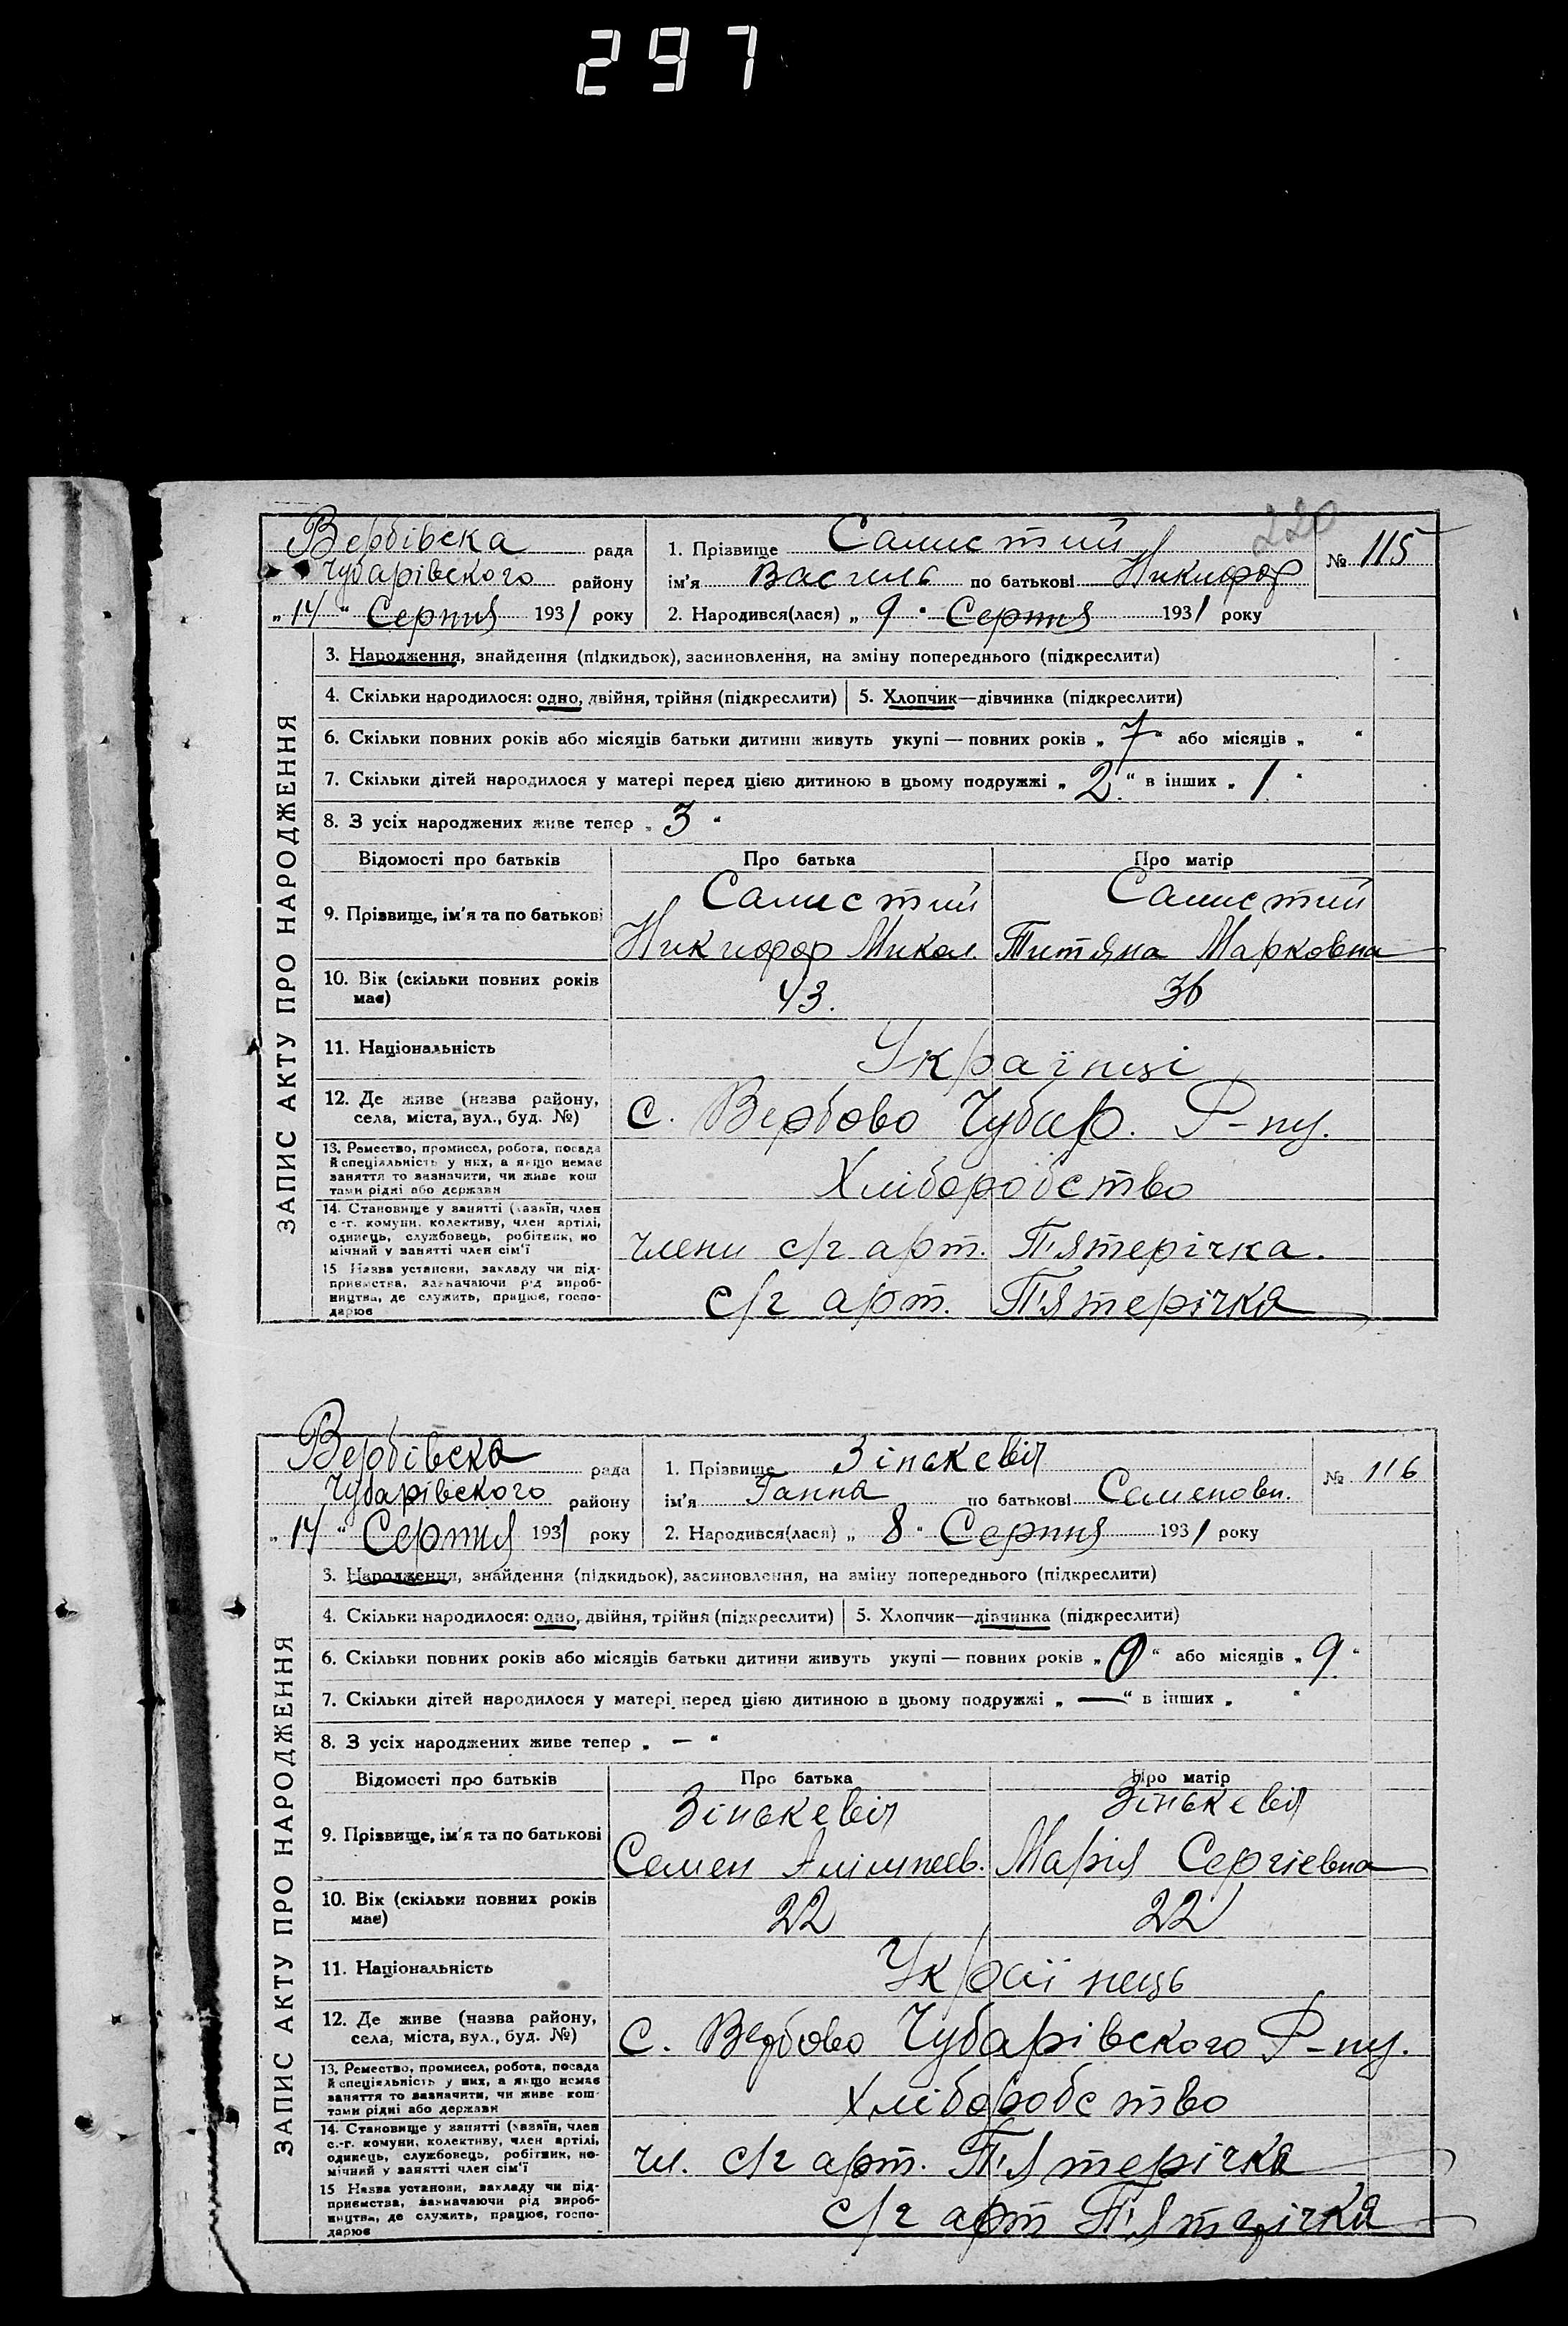 297
220
Вербівска рада
Чубарівского району
„14“ Серпня 1931 року
1. Прізвище Самистий
ім'я Василь по батькові Никифор
2. Народився(лася) „9“ Серпня 1931 року
№ 115
ЗАПИС АКТУ ПРО НАРОДЖЕННЯ
3. Народження, знайдення (підкидьок), засиновлення, на зміну попереднього (підкреслити)
4. Скільки народилося: одно, двійня, трійня (підкреслити) 5. Хлопчик—дівчинка (підкреслити)
6. Скільки повних років або місяців батьки дитини живуть укупі — повних років „7“ або місяців „ “
7. Скільки дітей народилося у матері перед цією дитиною в цьому подружжі „2“ в інших „1“
8. З усіх народжених живе тепер „3“
Відомості про батьків Про батька Про матір
9. Прізвище, ім'я та по батькові
Самистий Самистий
Никифор Микол. Титяна Марковна
10. Вік (скільки повних років має) 43. 36
11. Національність Українці
12. Де живе (назва району, села, міста, вул., буд. №) С. Вербово Чубар. Р-ну.
13. Ремество, промисел, робота, посада
й спеціяльність у них, а якщо немає
заняття то зазначити, чи живе кош
тами рідні або держави
Хліборобство
14. Становище у занятті (хазяїн, член
с.-г. комуни, колективу, член артілі,
одинець, службовець, робітник, по
мічний у занятті член сім'ї
члени с/г арт. П'ятерічка.
15 Назва установи, закладу чи під-
приємства, зазначаючи рід вироб-
ництва, де служить, працює, госпо-
дарює
с/г арт. П'ятерічка
Вербівска рада
Чубарівского району
„14“ Серпня 1931 року
1. Прізвище Зінькевіч
ім'я Ганна по батькові Семеновн.
2. Народився(лася) „8“ Серпня 1931 року
№ 116
ЗАПИС АКТУ ПРО НАРОДЖЕННЯ
3. Народження, знайдення (підкидьок), засиновлення, на зміну попереднього (підкреслити)
4. Скільки народилося: одно, двійня, трійня (підкреслити) 5. Хлопчик—дівчинка (підкреслити)
6. Скільки повних років або місяців батьки дитини живуть укупі — повних років „0“ або місяців „9“
7. Скільки дітей народилося у матері перед цією дитиною в цьому подружжі „—“ в інших „ “
8. З усіх народжених живе тепер „—“
Відомості про батьків Про батька Про матір
9. Прізвище, ім'я та по батькові
Зінькевіч Зінькевіч
Семен Марія Сергіевна
10. Вік (скільки повних років має) 22 22
11. Національність Українець
12. Де живе (назва району, села, міста, вул., буд. №) С. Вербово Чубарівского Р-ну.
13. Ремество, промисел, робота, посада
й спеціяльність у них, а якщо немає
заняття то зазначити, чи живе кош-
тами рідні або держави
Хліборобство
14. Становище у занятті (хазяїн, член
с.-г. комуни, колективу, член артілі,
одинець, службовець, робітник, по-
мічний у занятті член сім'ї
чл. с/г арт. П'ятерічка
15 Назва установи, закладу чи під-
приємства, зазначаючи рід вироб-
ництва, де служить, працює, госпо-
дарює
с/г арт П'ятерічка